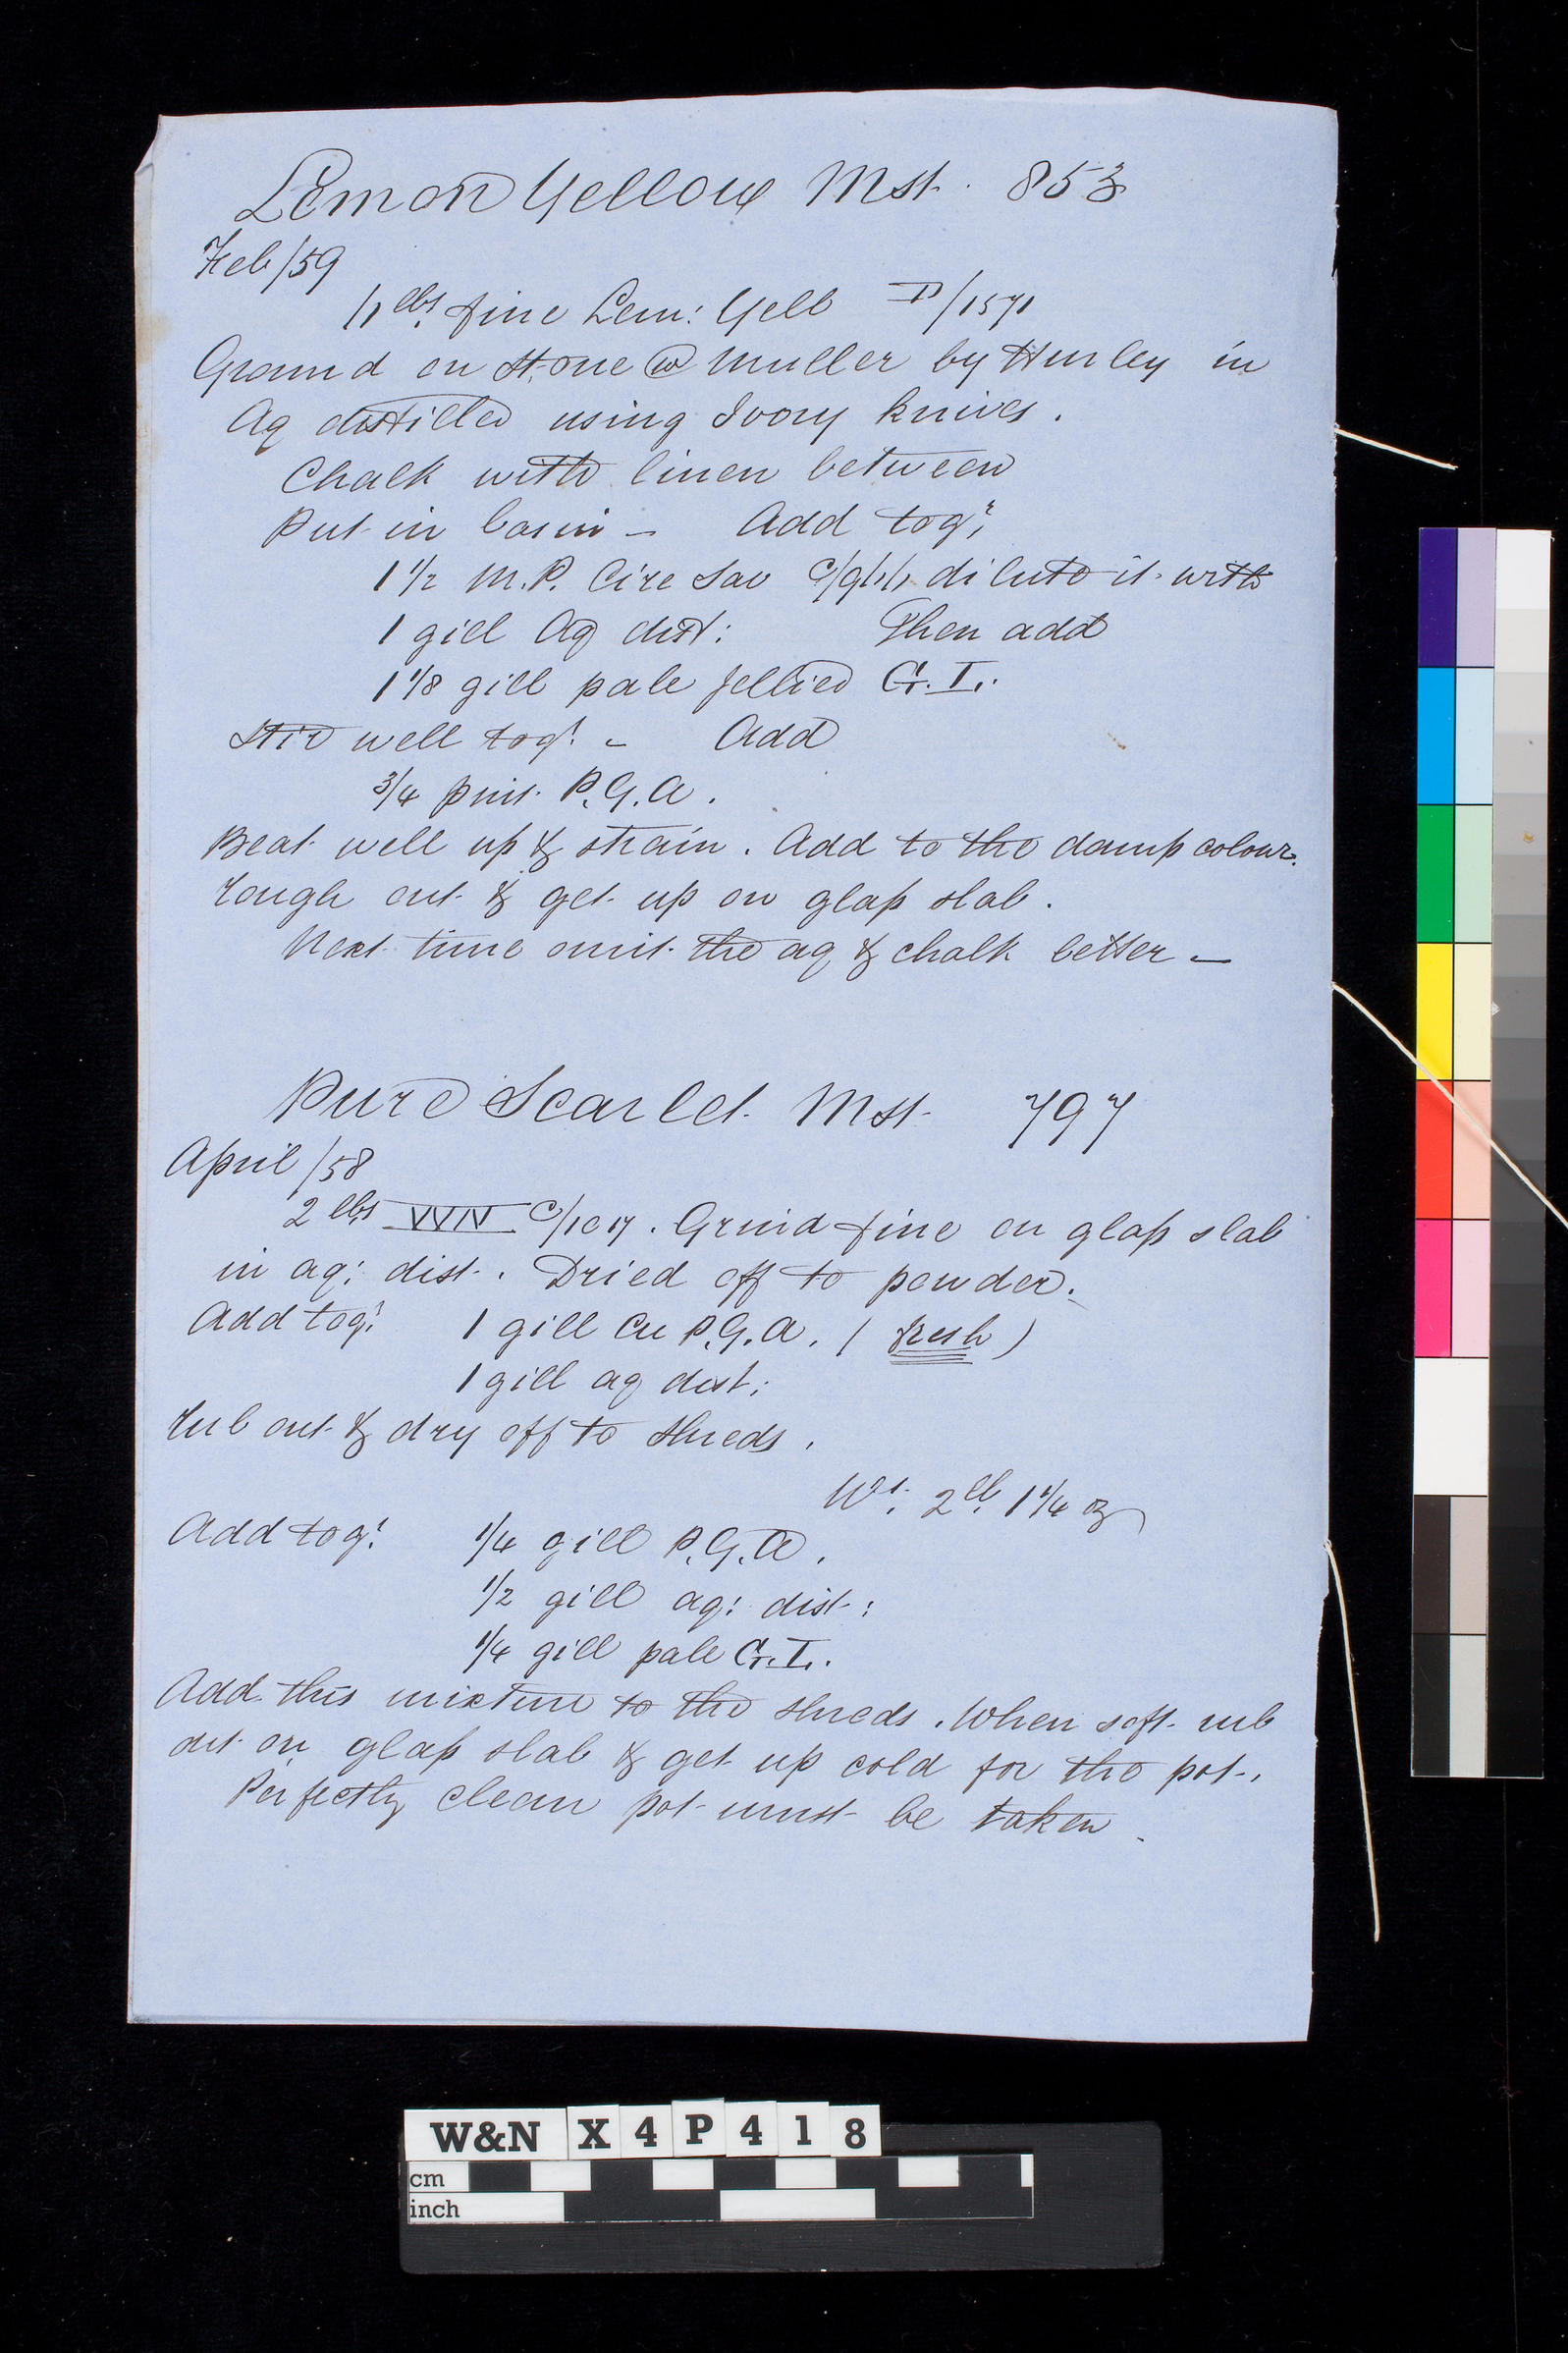 Lemon Yellow Mst. 853
Feb/59
11 lbs. fine Lem: Yell P/1571
Ground on stone @ Muller by Hurley in
Aq distilled using Ivory knives.
Chalk with linen between
Put in basin – Add tog:
1 1/2 M.P. Cire Sav dilute it with
1 gill Aq dist: Then add
1 1/8 gill pale jellied G.I.
Stir well tog: – Add
3/4 pint P.G.A.
Beat well up & strain. Add to the damp colour.
rough out & get up on glass slab.
Next time omit the aq & chalk better –
Pure Scarlet Mst. 797
April /58
2 lbs C/1017. Grind fine on glass slab
in aq: dist. Dried off to powder.
Add tog: 1 gill P.G.A. (fresh)
1 gill aq dist:
rub out & dry off to shreds.
Wt. 2 lb 1 1/4 oz
Add tog: 1/4 gill P.G.A.
1/2 gill aq: dist:
1/4 gill pale G.I.
Add this mixture to the shreds. When soft rub
out on glass slab & get up cold for the pot.
Perfectly clean pot must be taken.
W&N X4P418
cm
inch